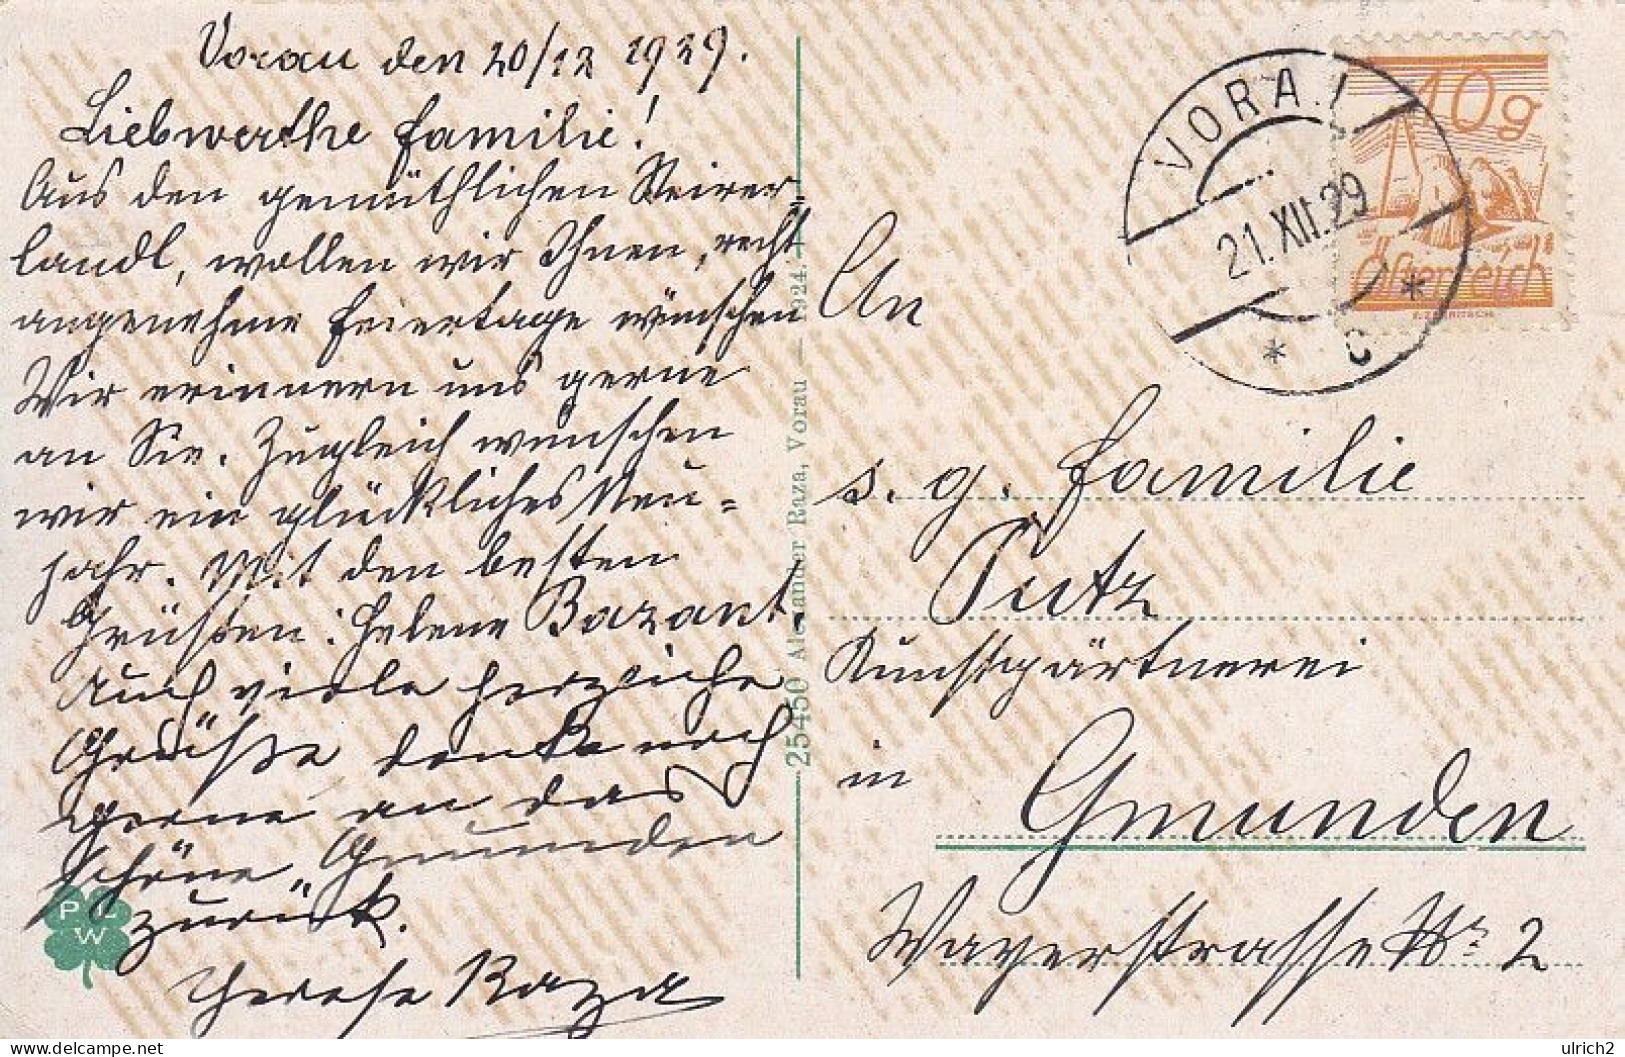 Vorau den 20/12 1929.
Liebwerthe Familie!
Aus den gemüthlichen Steirer-
landl, wollen wir Ihnen, recht
angenehme Feiertage wünschen
Wir erinnern uns gerne
an Sie. Zugleich wünschen
wir ein glückliches Neu=
jahr. Mit den besten
Grüßen: Helene Bazant.
Auch viele herzliche
Grüße denke noch
gerne an das
schöne Gmunden
zurück.
Therese Raza
P L
W
25450 Alexander Raza, Vorau — 1924.
VORAU
21.XII.29
* C *
10g
Österreich
An
s. g. Familie
Putz
Kunstgärtnerei
in
Gmunden
Wayerstrasse Nr 2
delcampe.net
ulrich2